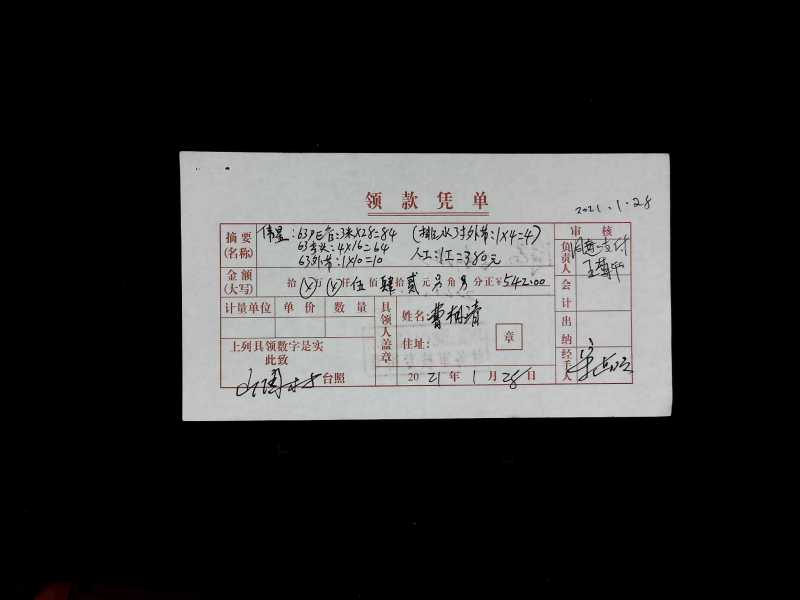 领款凭单
2021.1.28
摘要(名称) 伟星:63PE管:3米×28=84 (排水 外节:1×4=4) 审核
63弯头:4×16=64 人工:1工=380元
63外节:1×10=10
负责人 同意支付
金额(大写) 拾ⓧ万ⓧ仟伍佰肆拾贰元 角 分正¥542.00
计量单位 单价 数量 具领人盖章 姓名: 会计
住址: 章 出纳
上列具领数字是实
此致
台照 2021年1月28日 经手人